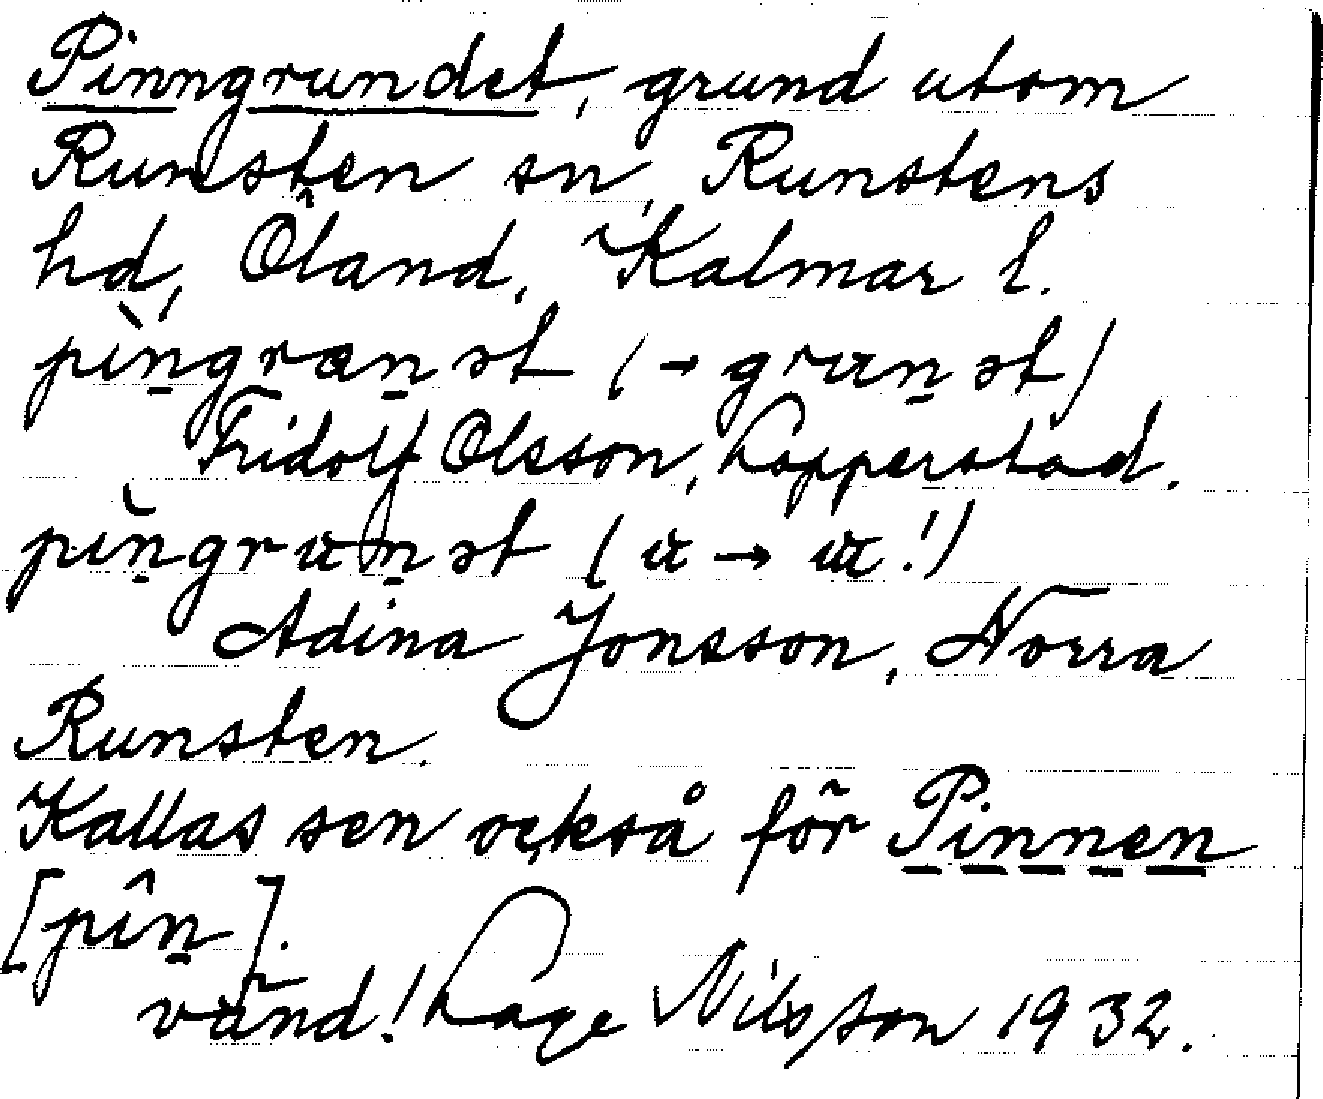 Pinngrundet, grund utom
Runsten sn, Runstens
hd, Öland, Kalmar l.
pìn̲græn̲ət (→ grɯn̲ət)
Fridolf Olsson, Lopperstad.
pìn̲grɯn̲ət (ɯ → ɯ!)
Adina Jonsson, Norra
Runsten.
Kallas sen också för Pinnen
[pîn̲].
vänd! Lage Nilsson 1932.